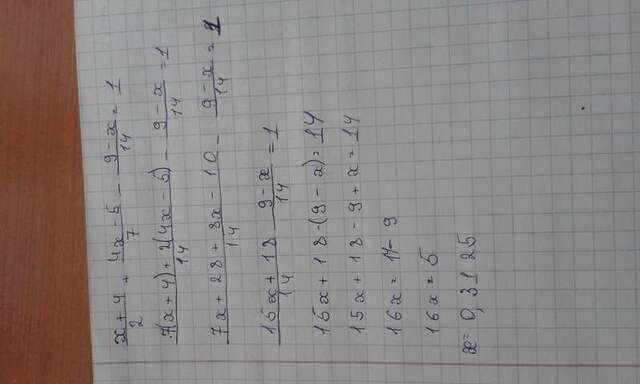 (x + 4)/2 + (4x - 5)/7 - (9 - x)/14 = 1
(7(x + 4) + 2(4x - 5))/14 - (9 - x)/14 = 1
(7x + 28 + 8x - 10)/14 - (9 - x)/14 = 1
(15x + 18)/14 (9 - x)/14 = 1
15x + 18 - (9 - x) = 14
15x + 18 - 9 + x = 14
16x = 14 - 9
16x = 5
x = 0,3125